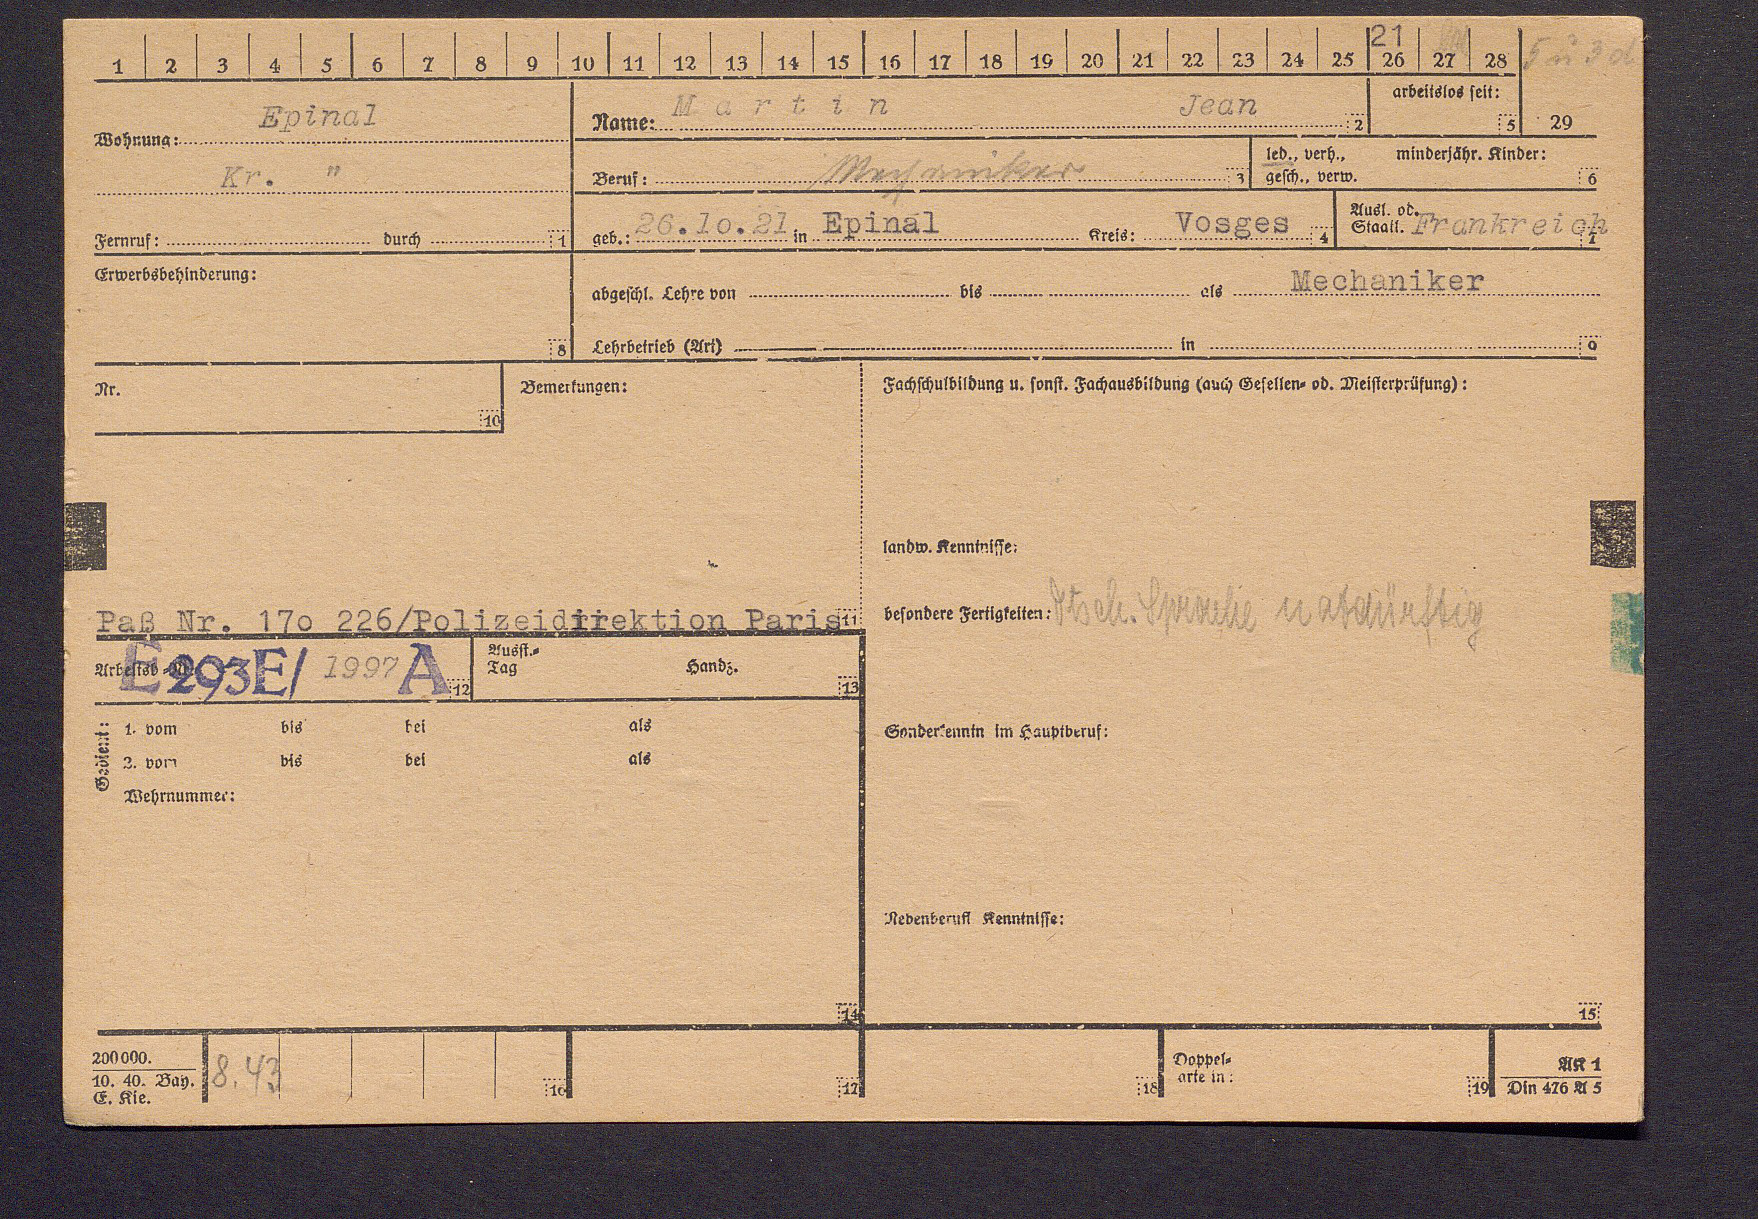 1 2 3 4 5 6 7 8 9 10 11 12 13 14 15 16 17 18 19 20 21 22 23 24 25 26 27 28
21
5 u 3 d
Wohnung: Epinal
Kr. "
Fernruf: durch 1
Name: Martin Jean 2
arbeitslos seit: 5
29
Beruf: Mechaniker 3
led., verh., minderjähr. Kinder:
gesch., verw. 6
geb.: 26.1o.21 in Epinal Kreis: Vosges 4
Ausl. od.
Staatl. Frankreich 7
Erwerbsbehinderung: 8
abgeschl. Lehre von bis als Mechaniker
Lehrbetrieb (Art) in 9
Nr. 10
Bemerkungen:
Paß Nr. 17o 226/Polizeidirektion Paris 11
Fachschulbildung u. sonst. Fachausbildung (auch Gesellen- od. Meisterprüfung):
landw. Kenntnisse:
besondere Fertigkeiten: Dtsch. Sprache notdürftig
Sonderkenntn im Hauptberuf:
Nebenberufl Kenntnisse:
15
Arbeitsb.-Nr. E 293E/ 1997 A 12
Ausst.-
Tag Handz. 13
Gedient:
1. vom bis bei als
2. vom bis bei als
Wehrnummer:
14
200000.
10. 40. Bay.
E. Kie.
8.43
16 17 18
Doppel-
arte in: 19
AK 1
Din 476 A 5